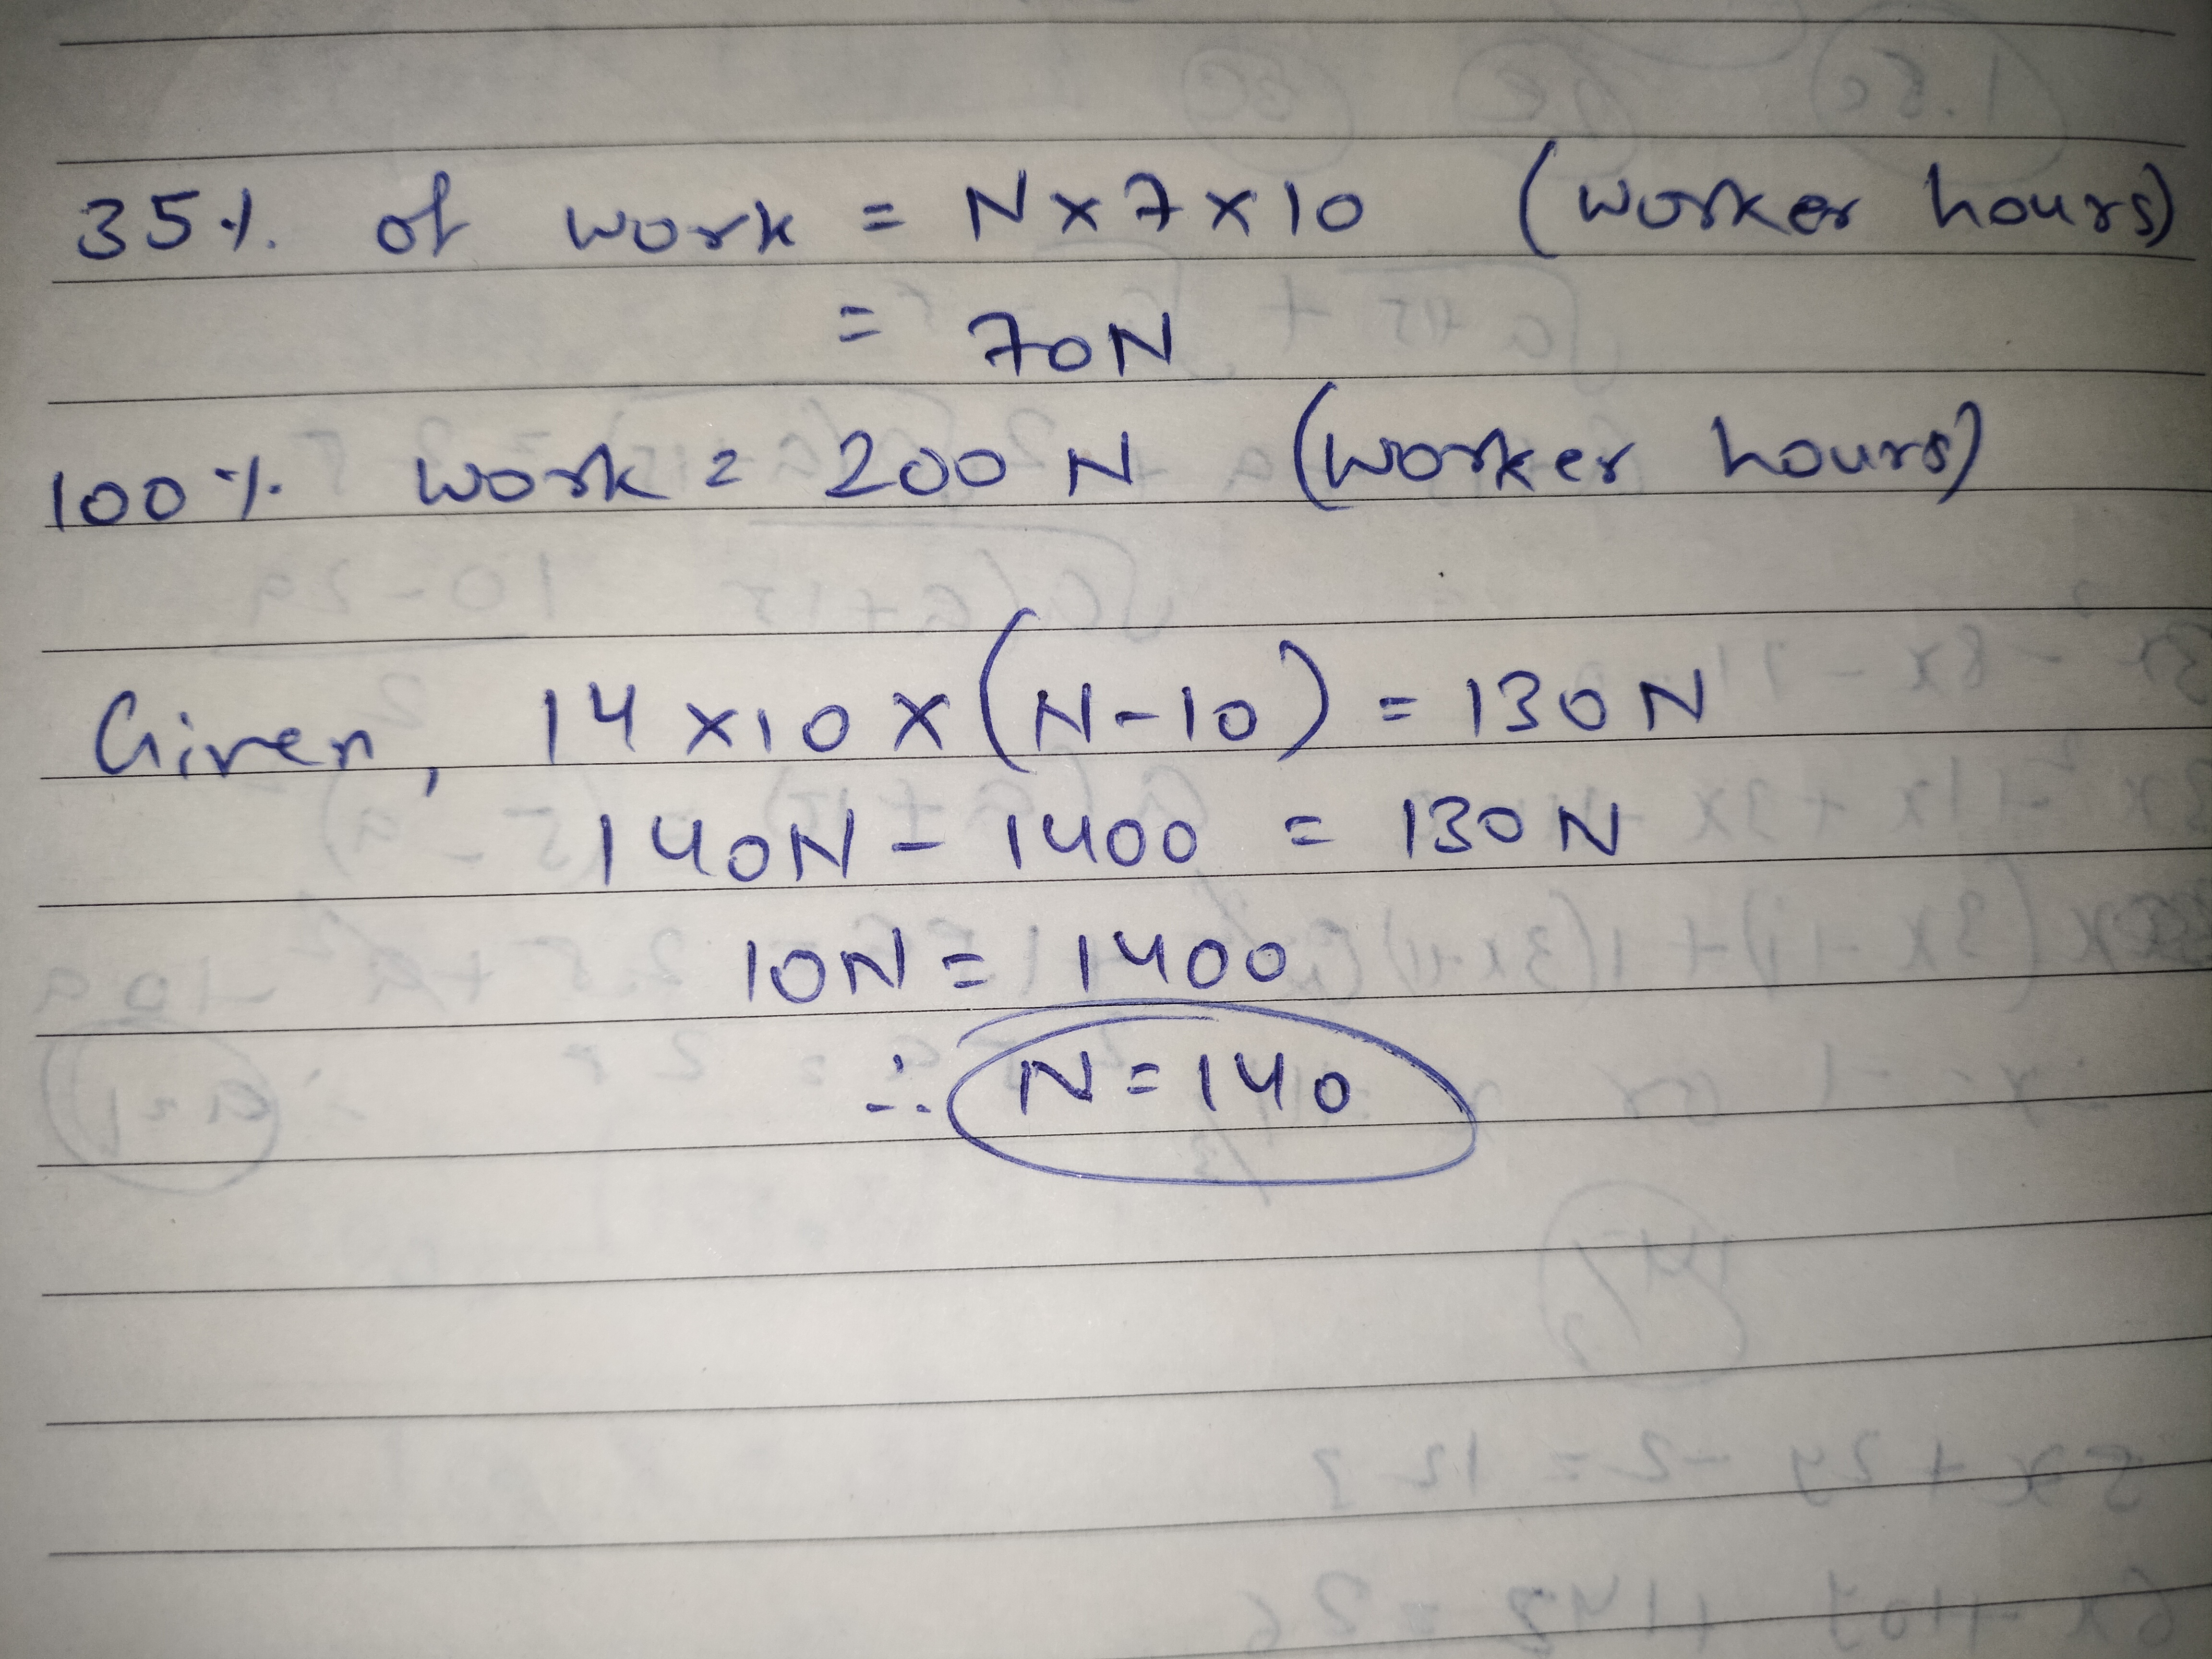 35% of work = N × 7 × 10 (worker hours)
= 70N
100% work = 200 N (worker hours)
Given, 14 × 10 × (N - 10) = 130 N
140N - 1400 = 130 N
10N = 1400
∴ N = 140